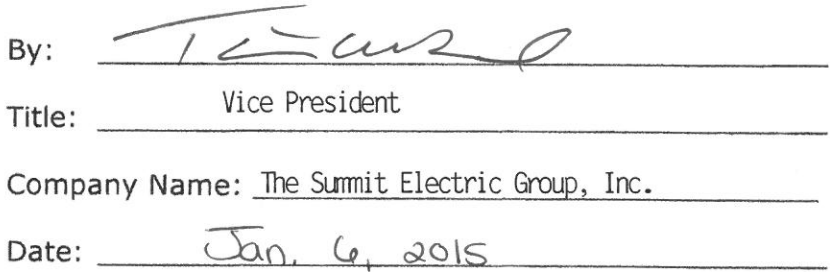 By:
Title: Vice President
Company Name: The Summit Electric Group, Inc.
Date: Jan. 6, 2015